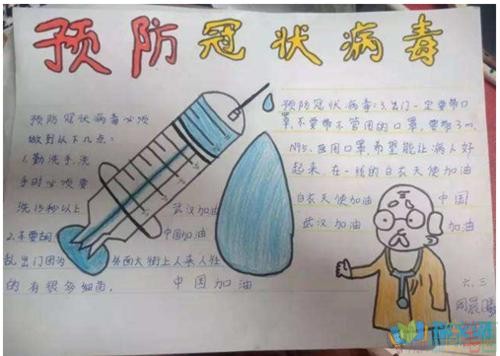 预防冠状病毒
预防冠状病毒必须
做到以下几点:
1.勤洗手,洗
手时必须要
洗15秒以上
2.不要胡
乱出门因为外面大街上人来人往
的有很多细菌。
武汉加油
中国加油
中国加油
预防冠状病毒:3.出门一定要带口
罩,不要带不管用的口罩,要带3m,
N95,医用口罩,希望能让病人好
起来,在一线的白衣天使加油
白衣天使加油 中国
武汉加油 加油
六.三